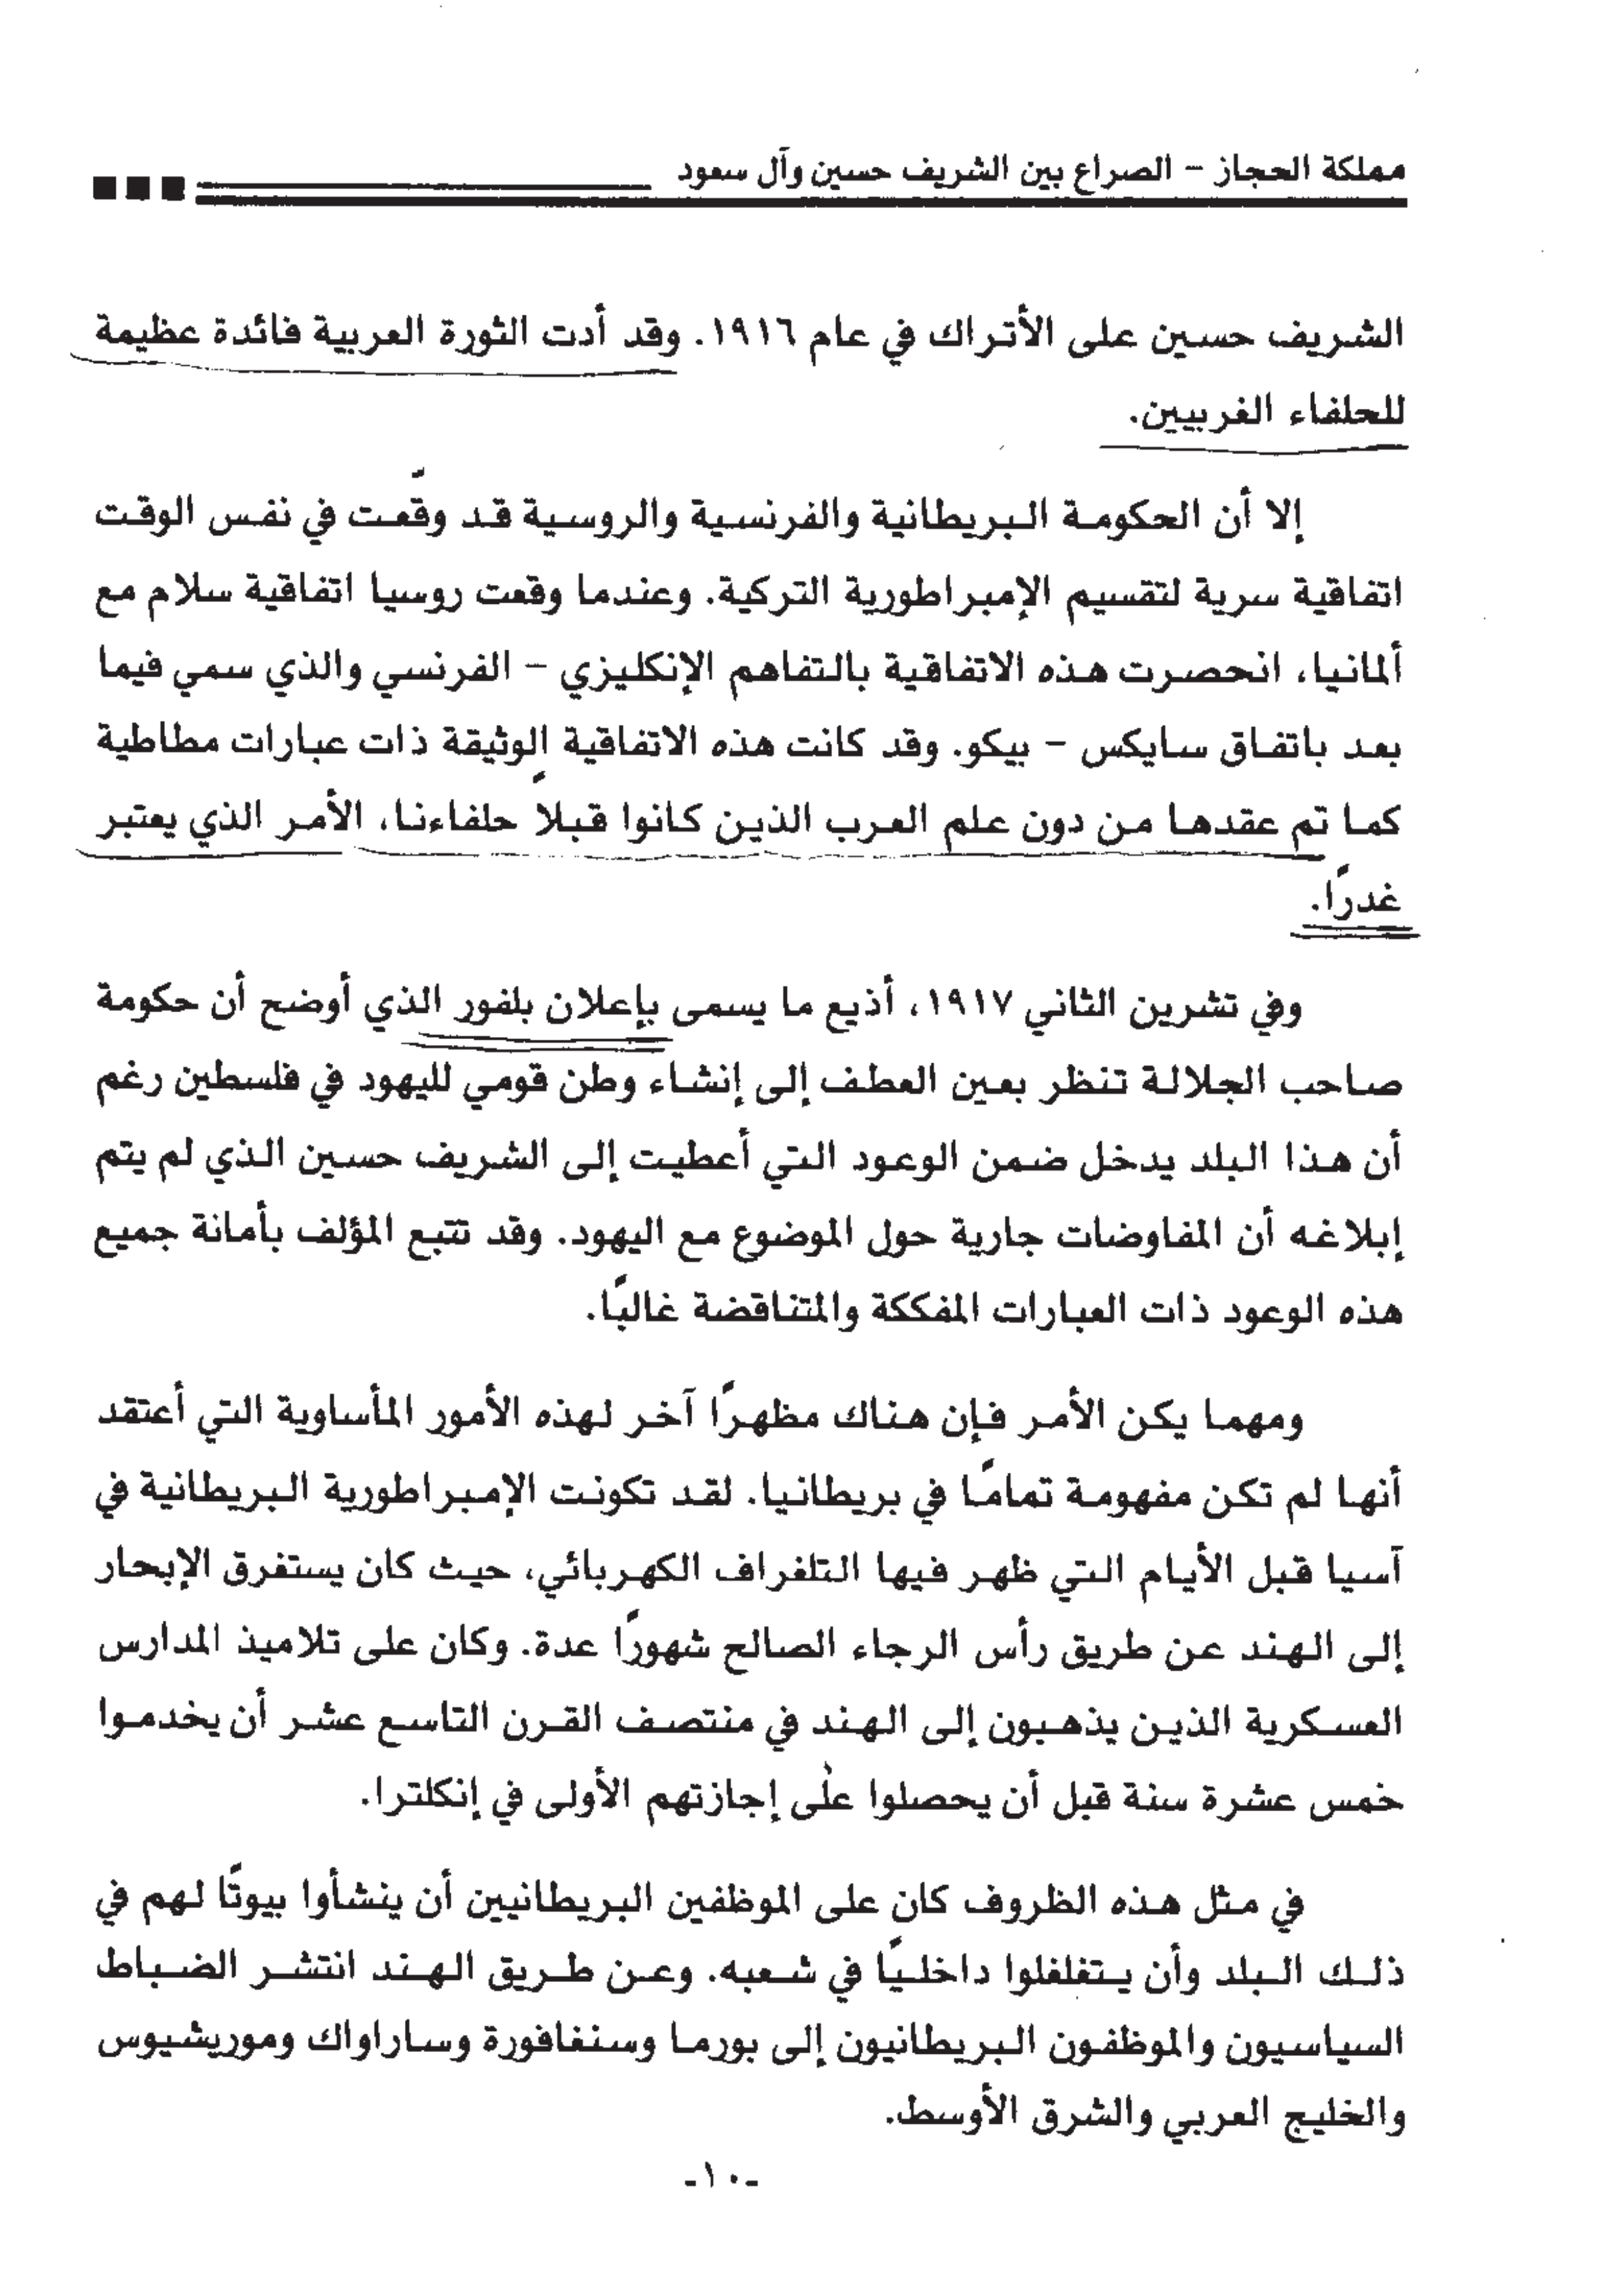 مملكة الحجاز – الصراع بين الشريف حسين وآل سعود
الشريف حسين على الأتراك في عام ١٩١٦. وقد أدت الثورة العربية فائدة عظيمة
للحلفاء الغربيين.
إلا أن الحكومة البريطانية والفرنسية والروسية قد وقّعت في نفس الوقت
اتفاقية سرية لتقسيم الإمبراطورية التركية. وعندما وقعت روسيا اتفاقية سلام مع
ألمانيا، انحصرت هذه الاتفاقية بالتفاهم الإنكليزي – الفرنسي والذي سمي فيما
بعد باتفاق سايكس – بيكو. وقد كانت هذه الاتفاقية الوثيقة ذات عبارات مطاطية
كما تم عقدها من دون علم العرب الذين كانوا قبلاً حلفاءنا، الأمر الذي يعتبر
غدرًا.
وفي تشرين الثاني ١٩١٧، أذيع ما يسمى بإعلان بلفور الذي أوضح أن حكومة
صاحب الجلالة تنظر بعين العطف إلى إنشاء وطن قومي لليهود في فلسطين رغم
أن هذا البلد يدخل ضمن الوعود التي أعطيت إلى الشريف حسين الذي لم يتم
إبلاغه أن المفاوضات جارية حول الموضوع مع اليهود. وقد تتبع المؤلف بأمانة جميع
هذه الوعود ذات العبارات المفككة والمتناقضة غالبًا.
ومهما يكن الأمر فإن هناك مظهرًا آخر لهذه الأمور المأساوية التي أعتقد
أنها لم تكن مفهومة تمامًا في بريطانيا. لقد تكونت الإمبراطورية البريطانية في
آسيا قبل الأيام التي ظهر فيها التلغراف الكهربائي، حيث كان يستغرق الإبحار
إلى الهند عن طريق رأس الرجاء الصالح شهورًا عدة. وكان على تلاميذ المدارس
العسكرية الذين يذهبون إلى الهند في منتصف القرن التاسع عشر أن يخدموا
خمس عشرة سنة قبل أن يحصلوا على إجازتهم الأولى في إنكلترا.
في مثل هذه الظروف كان على الموظفين البريطانيين أن ينشأوا بيوتًا لهم في
ذلك البلد وأن يتغلغلوا داخليًا في شعبه. وعن طريق الهند انتشر الضباط
السياسيون والموظفون البريطانيون إلى بورما وسنغافورة وساراواك وموريشيوس
والخليج العربي والشرق الأوسط.
-١٠-